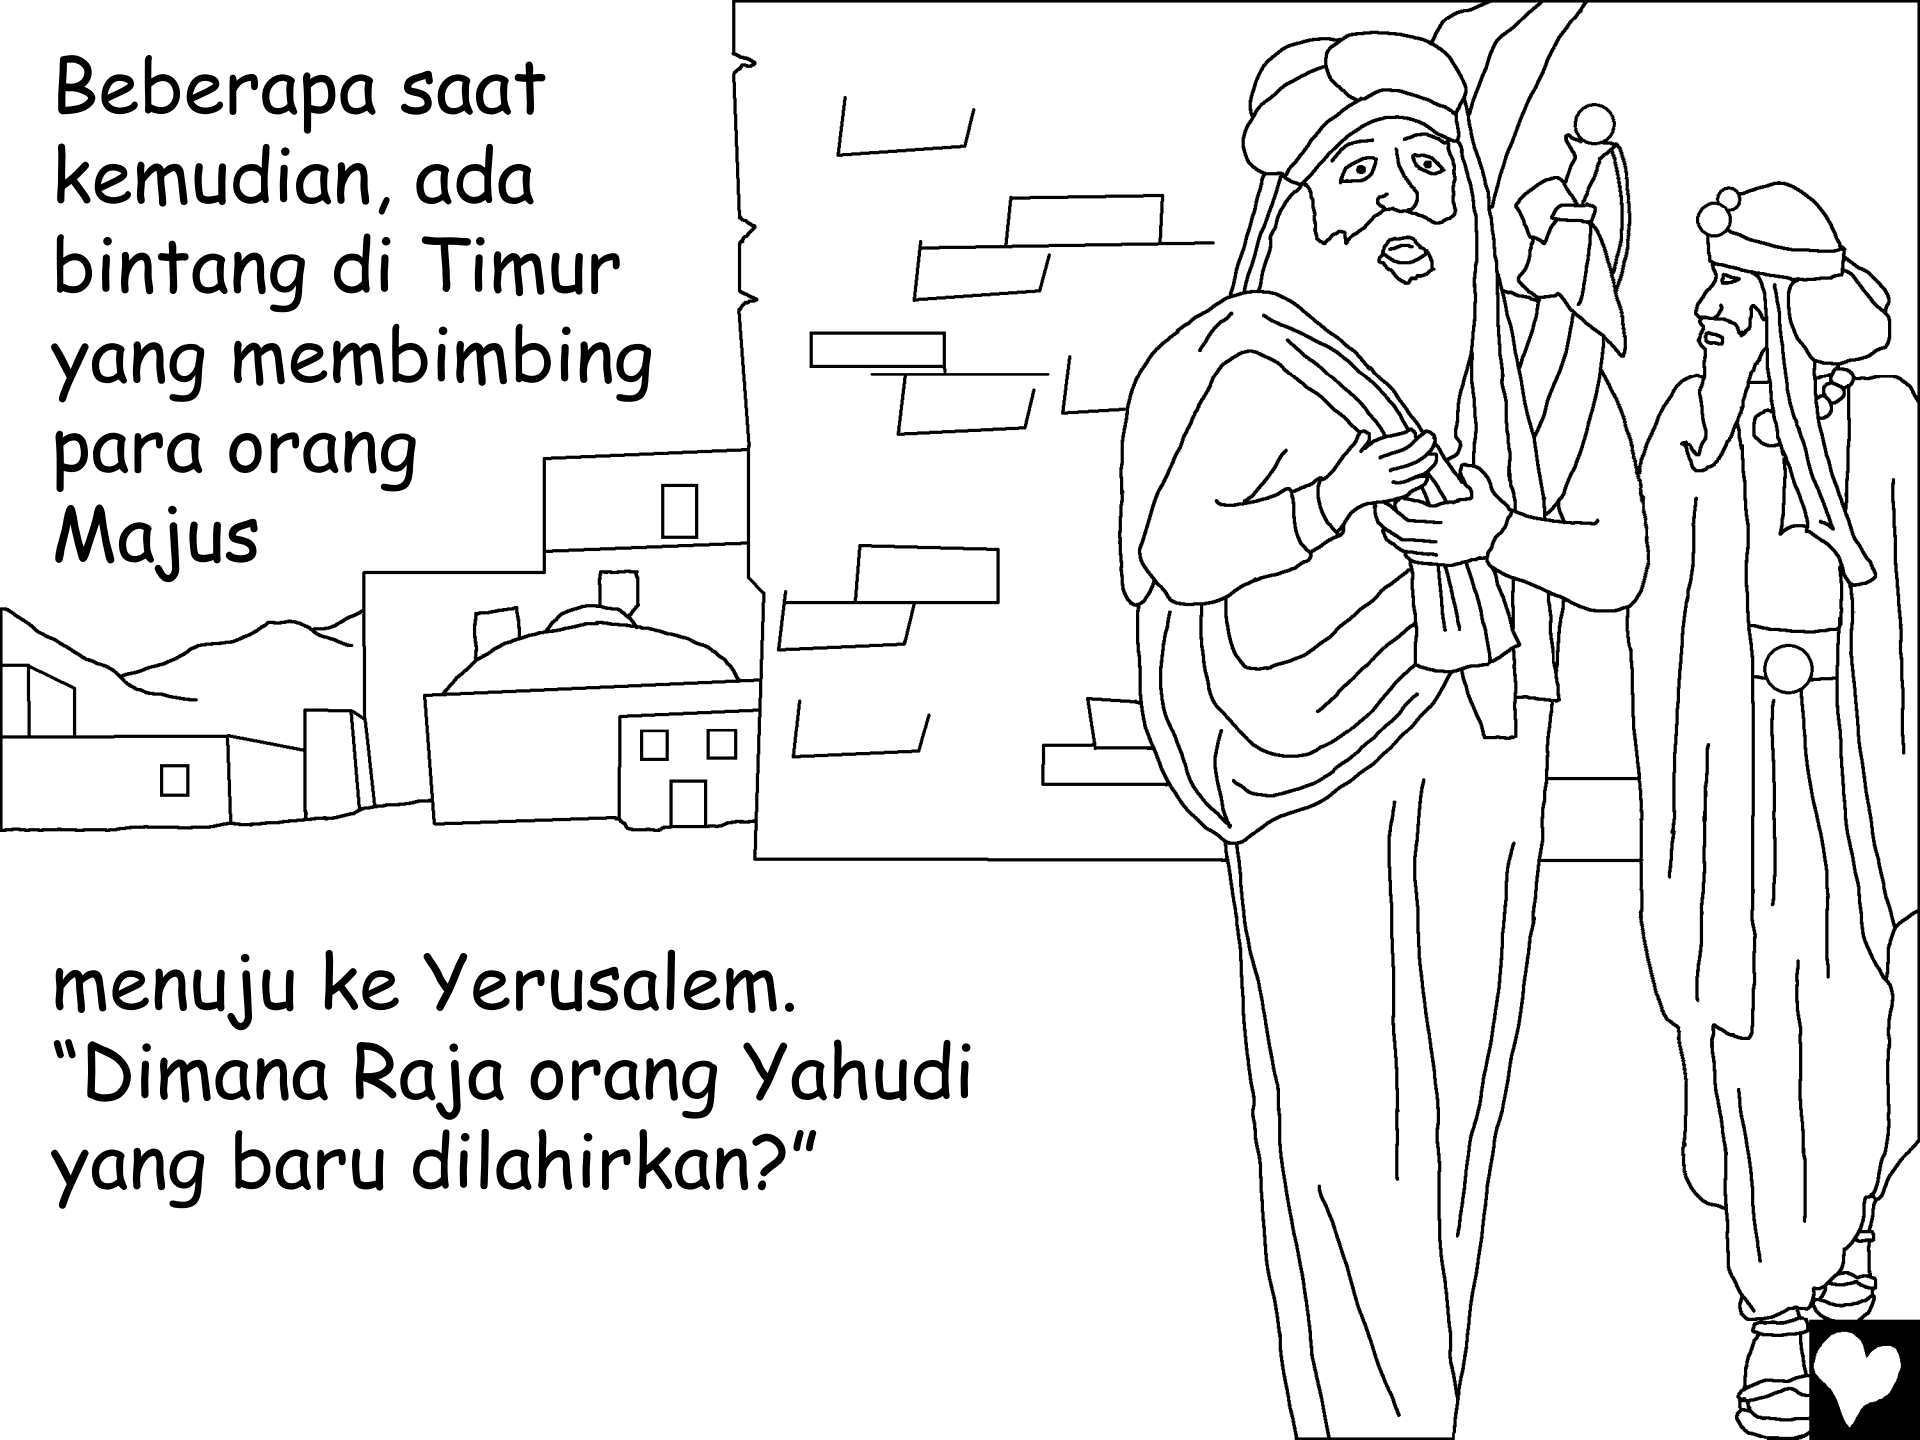 Beberapa saat
kemudian, ada
bintang di Timur
yang membimbing
para orang
Majus
menuju ke Yerusalem.
“Dimana Raja orang Yahudi
yang baru dilahirkan?”